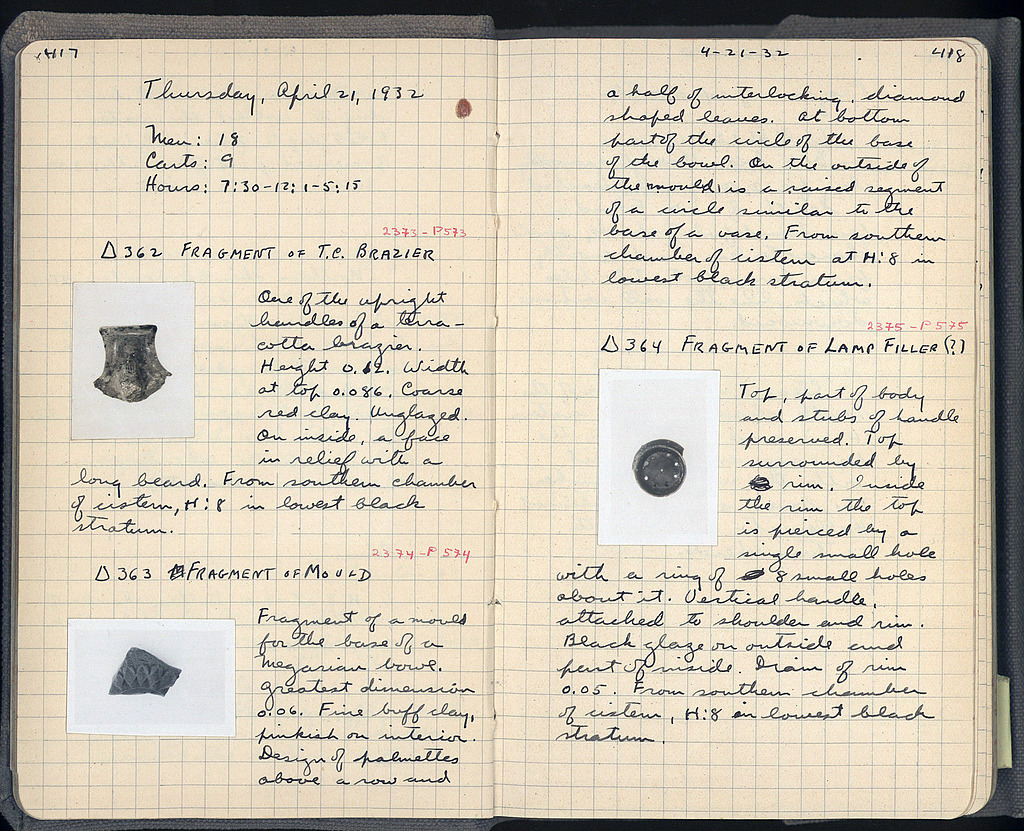 417
Thursday, April 21, 1932
Men: 18
Carts: 9
Hours: 7:30-12; 1-5:15
2373-P573
Δ 362 FRAGMENT OF T.C. BRAZIER
One of the upright
handles of a terra-
cotta brazier.
Height 0.12. Width
at top 0.086. Coarse
red clay. Unglazed.
On inside, a face
in relief with a
long beard. From southern chamber
of cistern, H:8 in lowest black
stratum.
2374-P574
Δ 363 FRAGMENT OF MOULD
Fragment of a mould
for the base of a
Megarian bowl.
Greatest dimension
0.06. Fine buff clay,
pinkish on interior.
Design of palmettes
above a row and
4-21-32
418
a half of interlocking, diamond
shaped leaves. At bottom
part of the circle of the base
of the bowl. On the outside of
the mould, is a raised segment
of a circle similar to the
base of a vase. From southern
chamber of cistern at H:8 in
lowest black stratum.
2375-P575
Δ 364 FRAGMENT OF LAMP FILLER (?)
Top, part of body
and stubs of handle
preserved. Top
surrounded by
rim. Inside
the rim the top
is pierced by a
single small hole
with a ring of 8 small holes
about it. Vertical handle,
attached to shoulder and rim.
Black glaze on outside and
part of inside. Diam of rim
0.05. From southern chamber
of cistern, H:8 in lowest black
stratum.